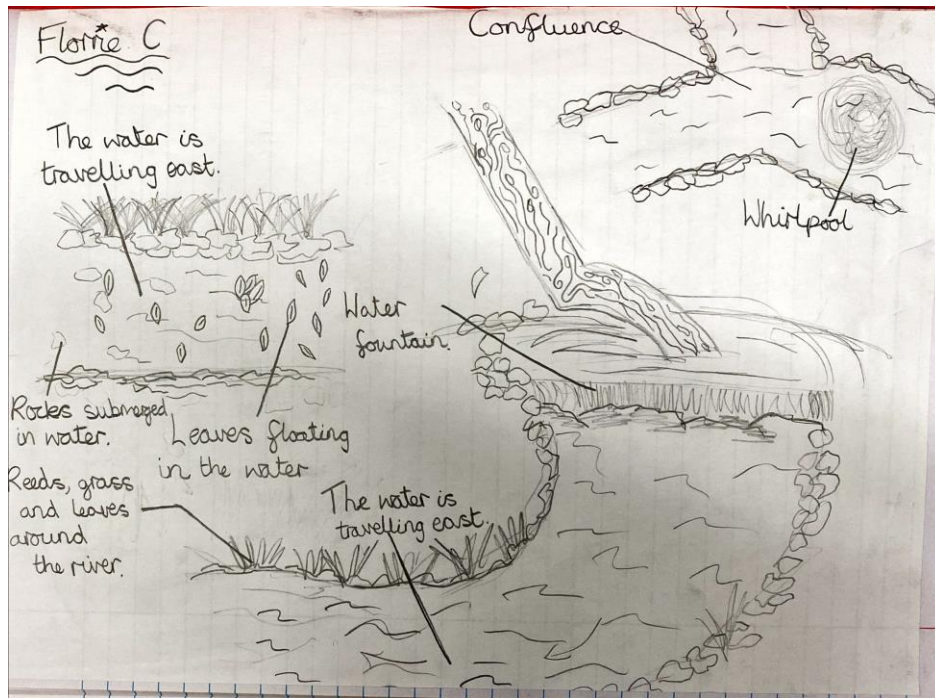 Florrie C
Confluence
The water is
travelling east.
Whirlpool
Water
fountain.
Rocks submerged
in water.
Leaves floating
in the water
Reeds, grass
and leaves
around
the river.
The water is
travelling east.